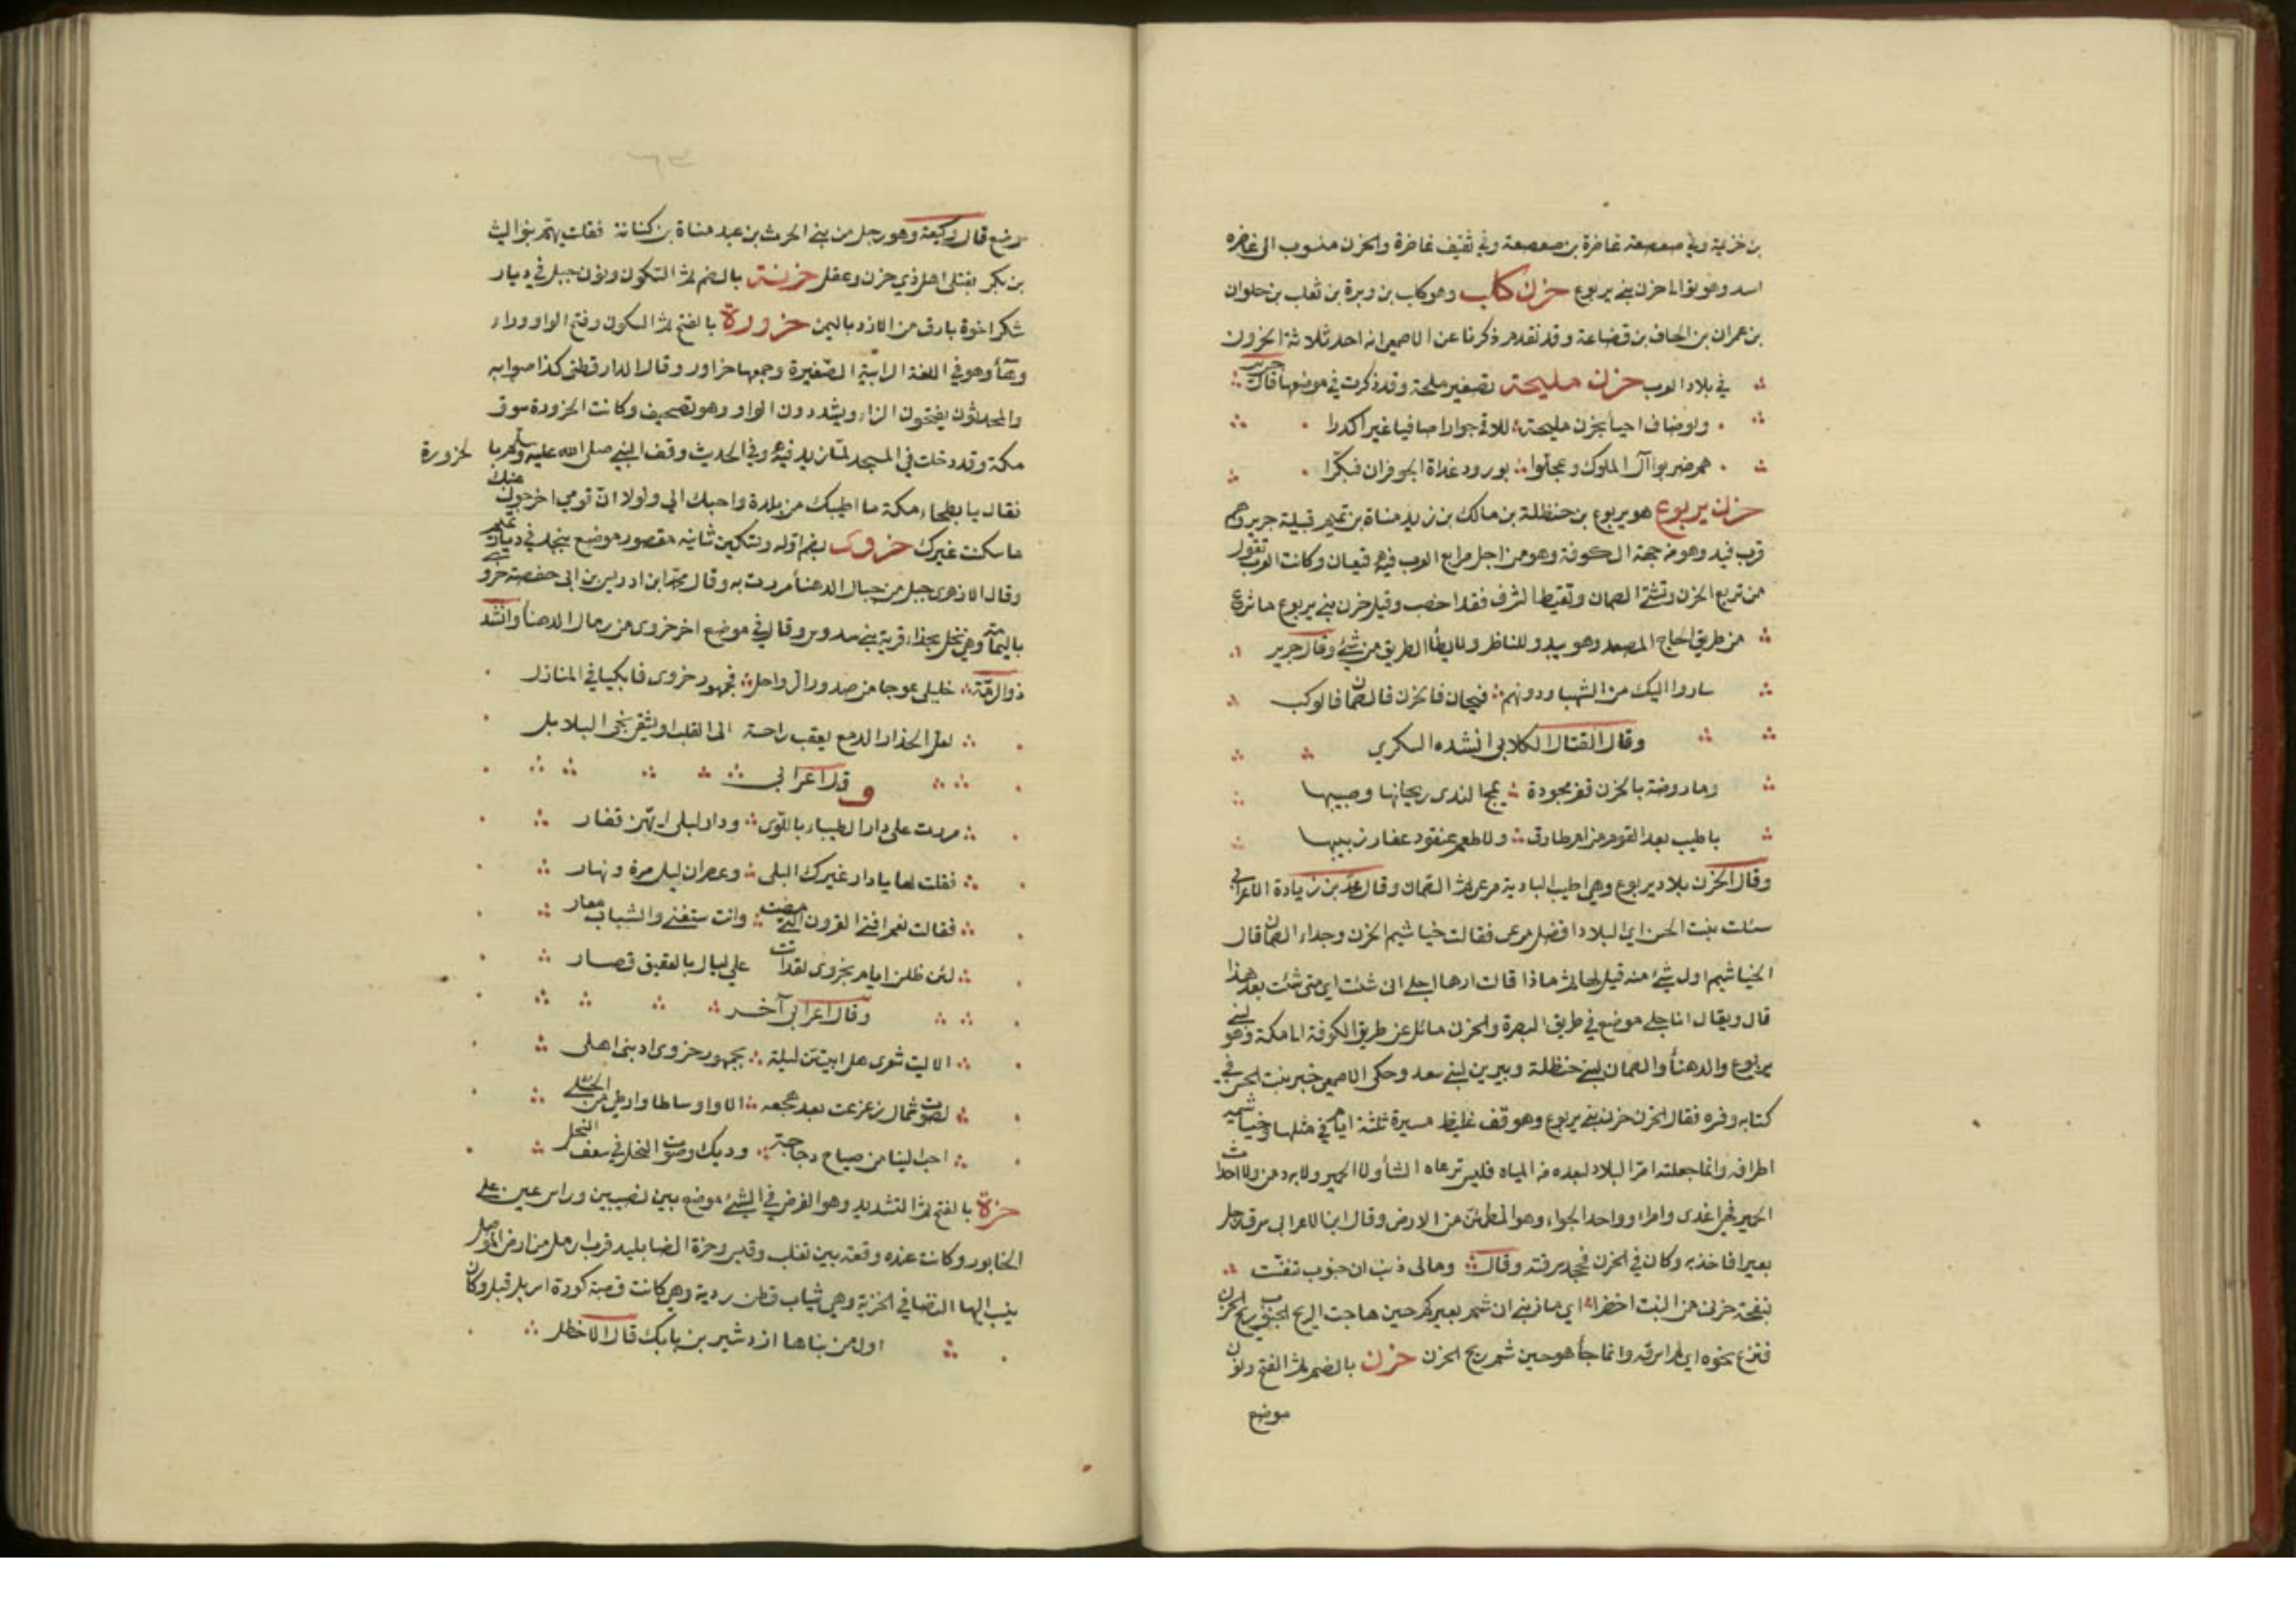 بن خزيمة وفي صعصعة غاضرة بن صعصعة وفي ثقيف غاضرة والحزن منسوب الى غاضرة
اسد وهو يوالا حزن بني يربوع حزن كلب وهو كلب بن وبرة بن ثعلب بن حلوان
بن عمران بن الحاف بن قضاعة وقد تقدم ذكرنا عن الاصمعي انه احد ثلاثة الحزون
في بلاد العرب حزن مليحة تصغير ملحة وقد ذكرت في موضعها قال جرير
ولو ضاف احياً بحزن مليحة للاقى جوارا صافيا غير اكدرا
هم ضربوا آل الملوك وعجلوا بورود غداة الحوفزان فبكرا
حزن يربوع هو يربوع بن حنظلة بن مالك بن زيد مناة بن تميم قبيلة جرير وهم
قرب فيد وهو من جهة الكوفة وهو من اجل مرابع العرب فيه قيعان وكانت العرب تقول
من تربع الحزن وتشتى الصمان وتقيظ الشرف فقد اخصب وقيل حزن بني يربوع ما شرع
من طريق الحاج المصعد وهو يبدو للناظر ولا يطأ الطريق من شيء وقال جرير
ساروا اليك من الشهبا ودونهم فيحان فالحزن فالصمان فالوكب
وقال القتال الكلابي انشده السكري
وما روضة بالحزن قفر مجودة يمج الندى ريحانها وصبيبها
باطيب بعد القوم من ام طارق ولا طعم عنقود عقار زبيبها
وقال الحزن بلاد يربوع وهي اطيب البادية مرعى ثم الصمان وقال محمد بن زيادة الاعرابي
سئلت بنت الخس اي البلاد افضل مرعى فقالت خياشيم الحزن وجداء الصمان قال
الخياشيم اول شيء منه قيل لها ثم ماذا قالت ارها اجلى انى شئت اي متى شئت بعد هذا
قال ويقال ان اجلى موضع في طريق البصرة والحزن مائل عن طريق الكوفة الى مكة وهو لبني
يربوع والدهنأ والصمان لبني حنظلة ويبرين لبني سعد وحكى الاصمعي خبر بنت الخس في
كتابه وفسره فقال الحزن حزن بني يربوع وهو قف غليظ مسيرة ثلثة ايام في مثلها وخياشيمه
اطرافه وانما جعلته امرا البلاد لبعده من المياه فليس ترعاه الشأ ولا الحمير ولا به دمن ولا ارواث
الحمير فهي اغدى وامراء وواحد الجواء وهو المطمئن من الارض وقال ابن الاعرابي سرق رجل
بعيرا فاخذ به وكان في الحزن فجحد سرقته وقال وما لي ذنب ان جنوب تنفست
بنفحة حزن من النبت اخضرا اي ما ذنبي ان شم بعيركم حين هاجت الريح الجنوب ريح الحزن
فنزع نحوه اي لم اسرقه وانما جأ هو حين شم ريح الحزن حزن بالضم ثم الفتح ونون
موضع
موضع قال وكيعة وهو رجل من بني الحرث بن عبد مناة بن كنانة فقلت يهتم بنو ليث
بن بكر بقتلى اهل ذي حزن وعقل حزنة بالضم ثم السكون ونون جبل في ديار
شكر اخوة بارق من الازد باليمن حزورة بالفتح ثم السكون وفتح الواو وراء
وهآء وهو في اللغة الرابية الصغيرة وجمعها حزاور وقال الدارقطني كذا صوابه
والمحدثون يفتحون الزاء ويشددون الواو وهو تصحيف وكانت الحزورة سوق
مكة وقد دخلت في المسجد لما زيد فيه وفي الحديث وقف النبي صلى الله عليه وسلم بها
لحزورة
فقال يا بطحاء مكة ما اطيبك من بلدة واحبك الي ولولا ان قومي اخرجوني منك
ما سكنت غيرك حزوى بضم اوله وتسكين ثانيه مقصور موضع بنجد في ديار تميم
وقال الازهري جبل من جبال الدهنأ مررت به وقال محمد ابن ادريس بن ابي حفصة حزوى
باليمامة وهي نخل بحذاء قرية بني سدوس وقال في موضع اخر حزوى من رمال الدهنأ وانشد
ذو الرمة خليلي عوجا من صدور الرواحل بجمهور حزوى فابكيا في المنازل
لعل انحذار الدمع يعقب راحة الى القلب او يشفي نجي البلابل
وقال اعرابي
مررت على دار لظبياء باللوى ودار لليلى انهن قفار
فقلت لها يا دار غيرك البلى وعصران ليل مرة ونهار
فقالت نعم افنى القرون التي مضت وانت ستفنى والشباب معار
لئن طلن ايام بحزوى لقد اتت علي ليال بالعقيق قصار
وقال اعرابي آخر
الا ليت شعري هل ابيتن ليلة بجمهور حزوى او بنى اهلى
لصوت شمال زعزعت بعد هجعه الاوا وساطا وارطى من الحبلى
احب الينا من صياح دجاجة وديك وصوت النخل في سعف النخل
حزة بالفتح ثم التشديد وهو الفرض في الشيء موضع بين نصيبين وراس عين على
الخابور وكانت عنده وقعة بين تغلب وقيس وحزة ايضا بليد قرب اربل من ارض الموصل
ينسب اليها النصافي الحزية وهي ثياب قطن ردية وهي كانت قصبة كورة اربل قبل وكان
اول من بناها اردشير بن بابك قال الاخطل